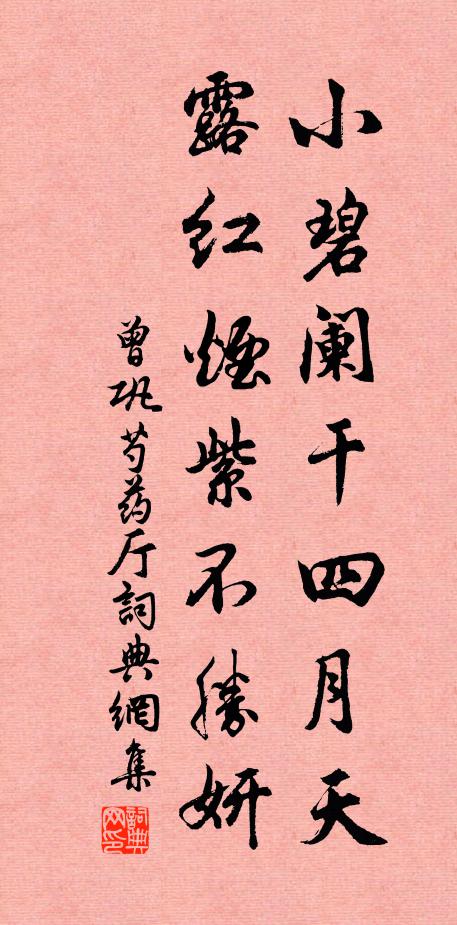 小碧阑干四月天
露红烟紫不勝妍
曾巩芍药厅詞典網集
詞典网印